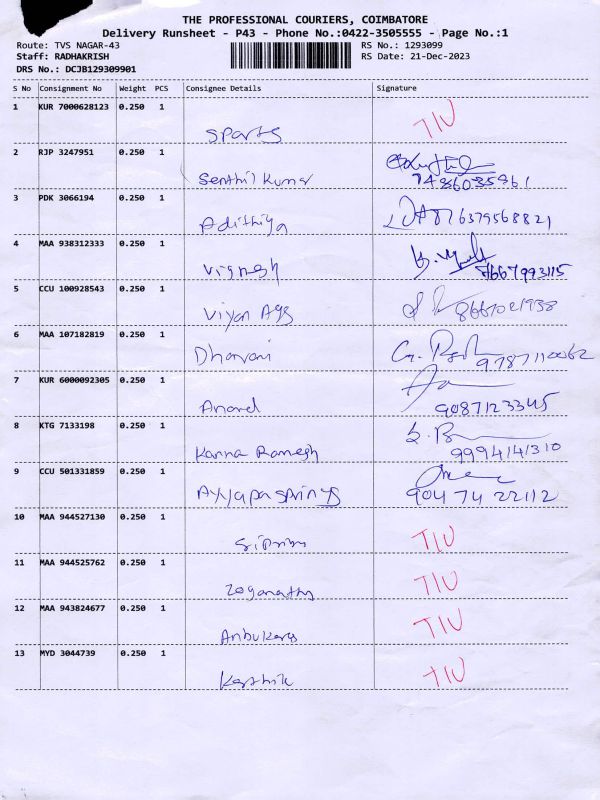 THE PROFESSIONAL COURIERS, COIMBATORE
Delivery Runsheet - P43 - Phone No.:0422-3505555 - Page No.:1
Route: TVS NAGAR-43 RS No.: 1293099
Staff: RADHAKRISH RS Date: 21-Dec-2023
DRS No.: DCJB129309901
S No Consignment No Weight PCS Consignee Details Signature
1 KUR 7000628123 0.250 1 Sports TIU
2 RJP 3247951 0.250 1 Senthil Kumar
3 PDK 3066194 0.250 1 Adithiya
4 MAA 938312333 0.250 1 Vignesh
5 CCU 100928543 0.250 1 Viyan Ags
6 MAA 107182819 0.250 1 Dharani 9787110062
7 KUR 6000092305 0.250 1 Anand 9087123345
8 KTG 7133198 0.250 1 Kanna Ramesh 9994141310
9 CCU 501331859 0.250 1 Ayyapa springs 904 74 22112
10 MAA 944527130 0.250 1 TIU
11 MAA 944525762 0.250 1 TIU
12 MAA 943824677 0.250 1 TIU
13 MYD 3044739 0.250 1 Karthik TIU